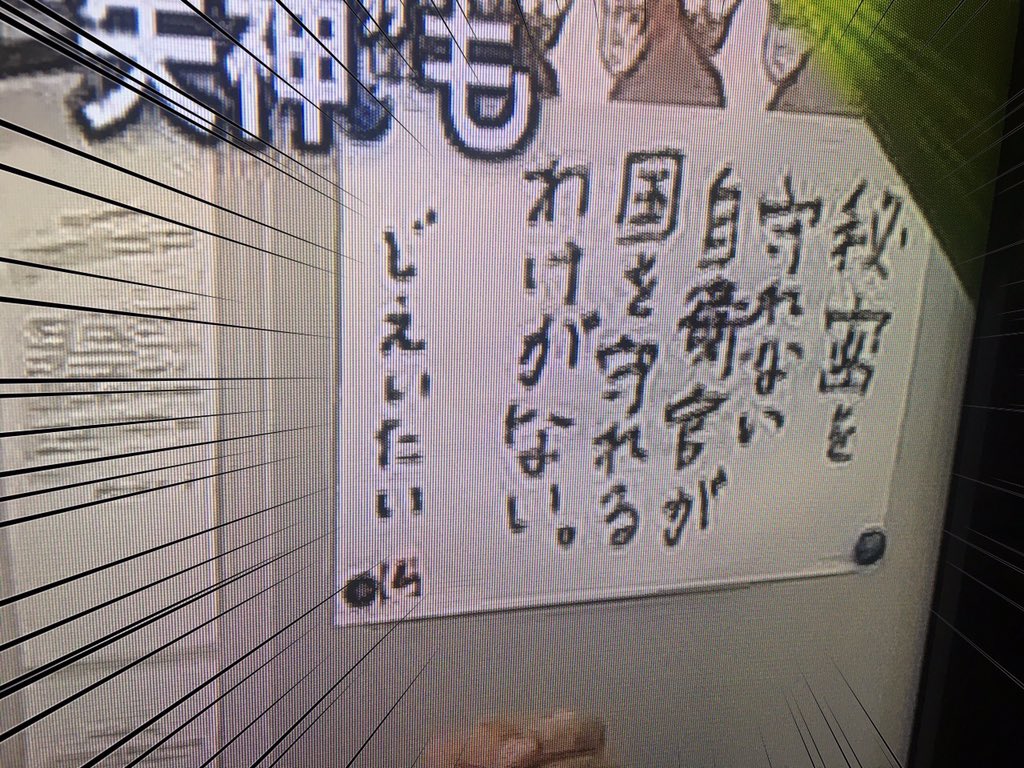 秘密を
守れない
自衛官が
国を守れる
わけがない。
じえいたい